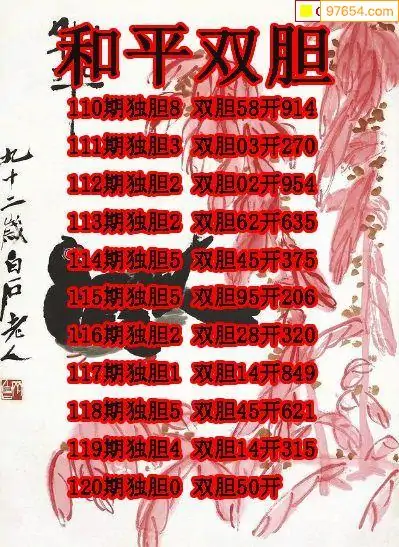 97654.com
和平双胆
110期独胆8 双胆58开914
111期独胆3 双胆03开270
112期独胆2 双胆02开954
113期独胆2 双胆62开635
114期独胆5 双胆45开375
115期独胆5 双胆95开206
116期独胆2 双胆28开320
117期独胆1 双胆14开849
118期独胆5 双胆45开621
119期独胆4 双胆14开315
120期独胆0 双胆50开
九十二岁白石老人